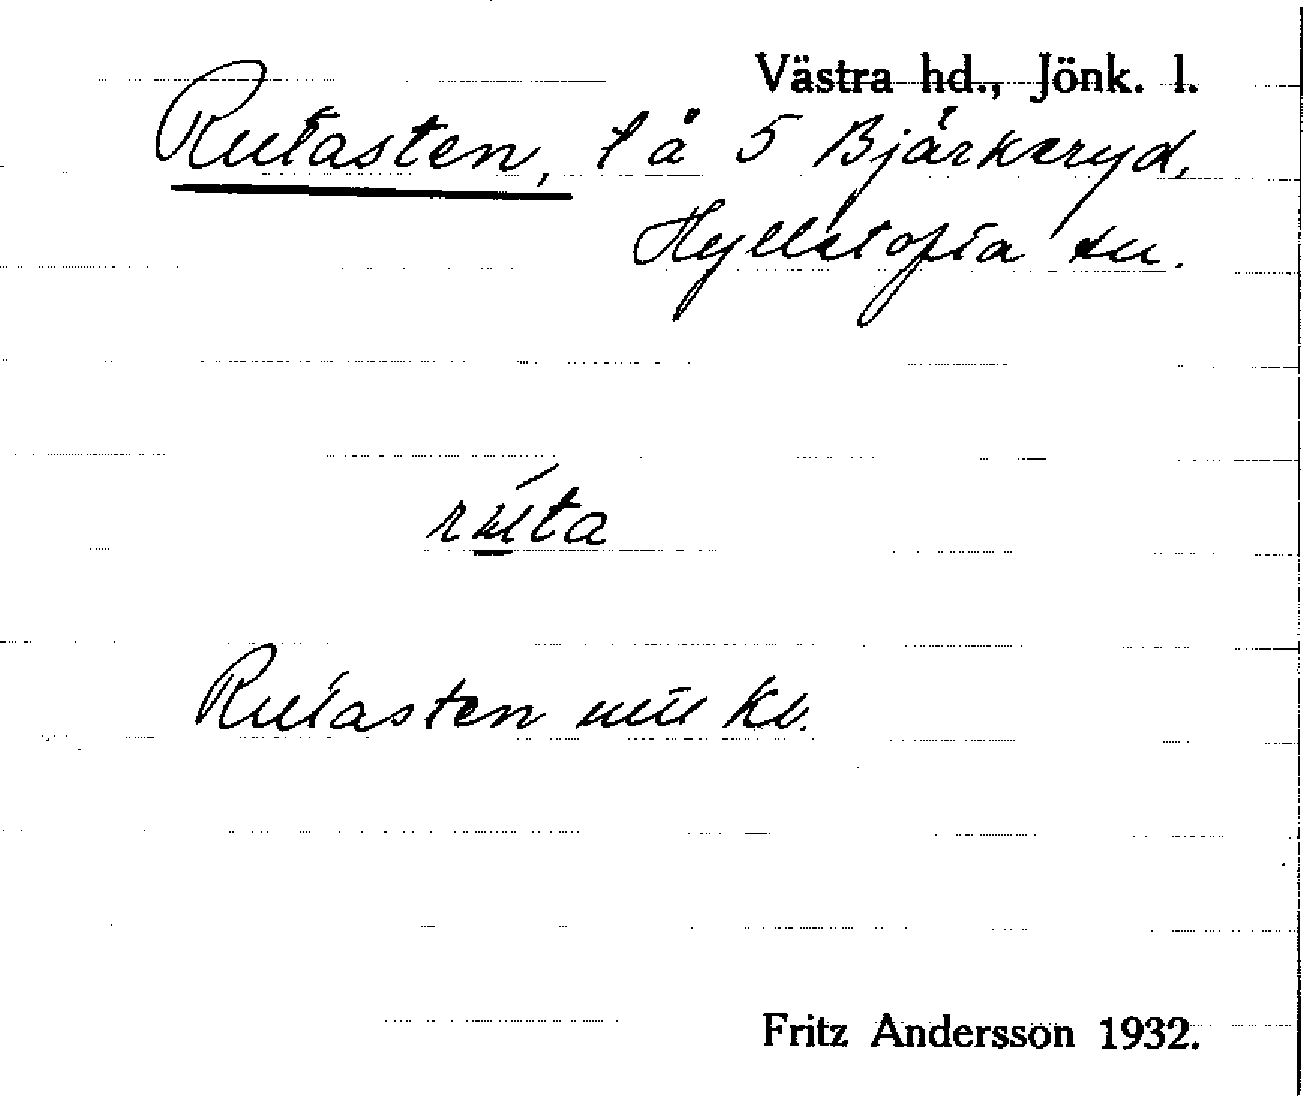 Västra hd., Jönk. l.
Rutasten, l å 5 Bjärkeryd,
Hyllstofta sn.
rúta
Rutasten mil kv.
Fritz Andersson 1932.